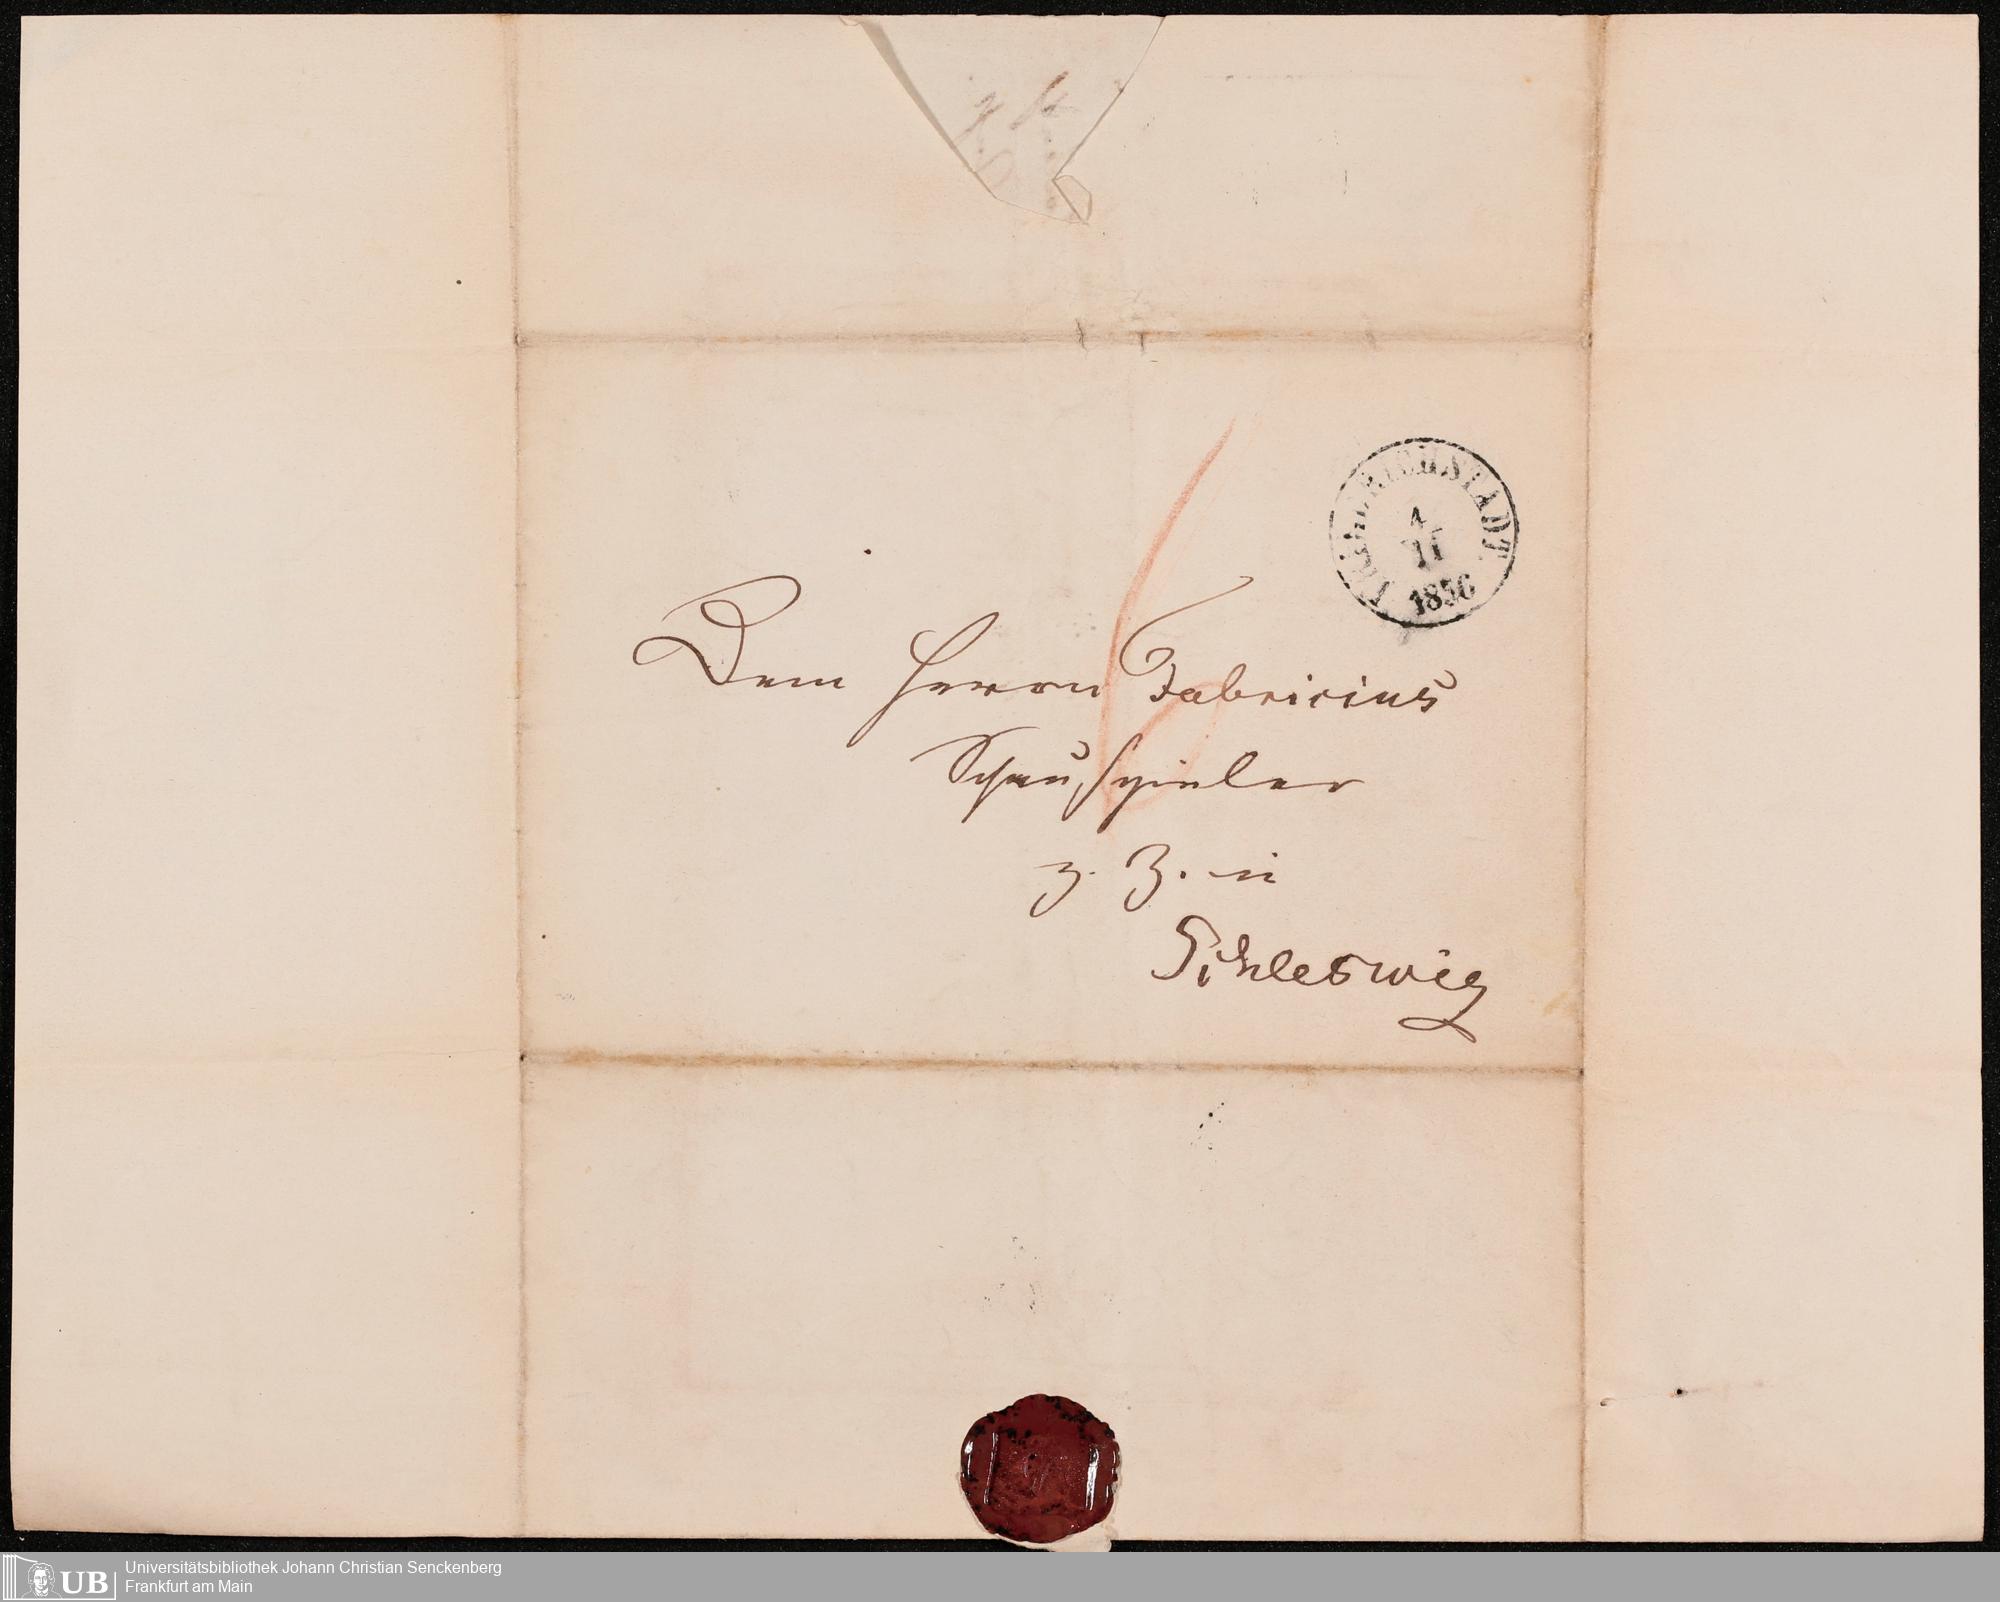 FRIEDRICHSTADT.
11
1856
Dem Herrn Fabricius
Schauspieler
z. Z. in
Schleswig
Universitätsbibliothek Johann Christian Senckenberg
UB Frankfurt am Main